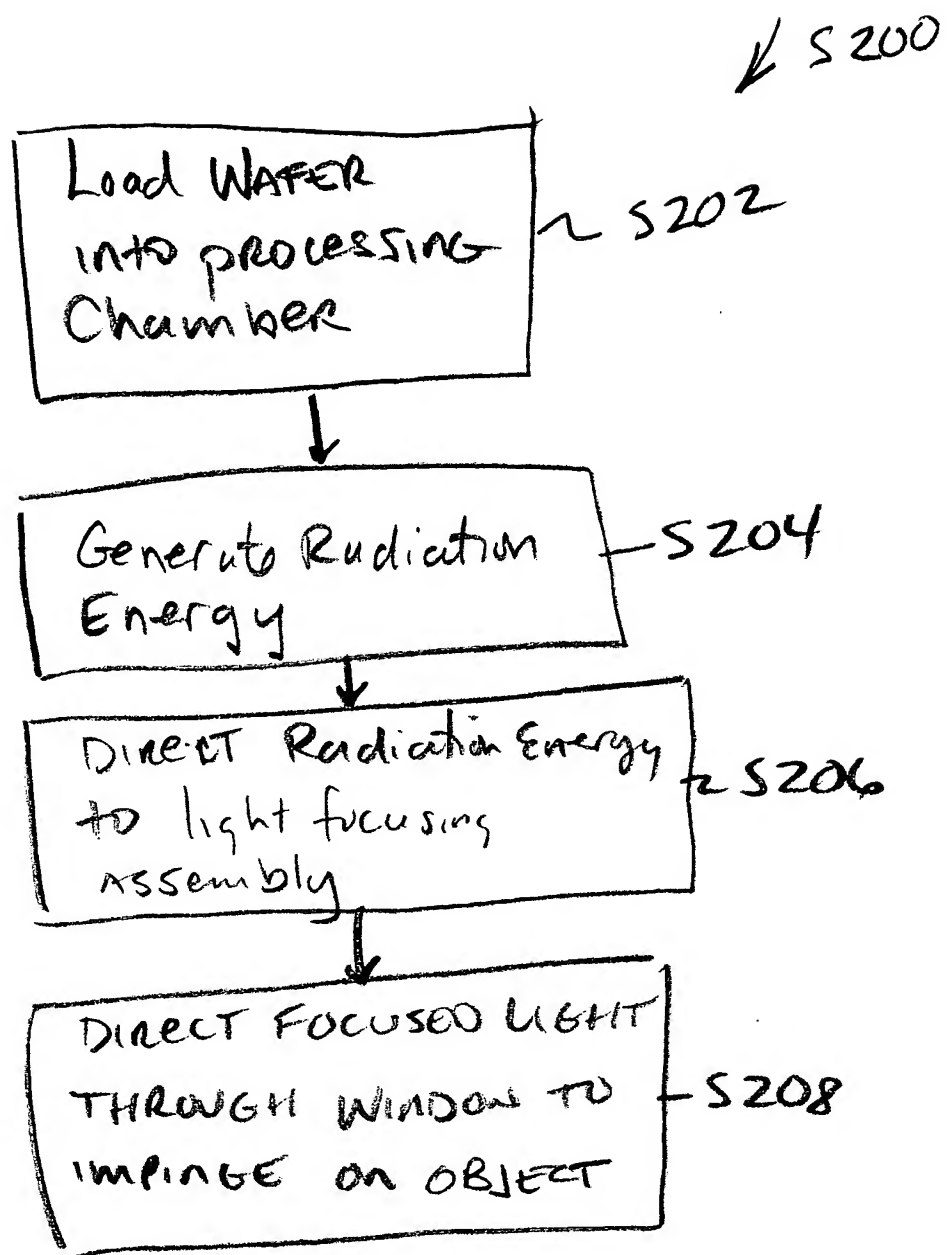 S200
Load WAFER
into processing
Chamber
S202
Generate Radiation
Energy
S204
DIRECT Radiation Energy
to light focusing
Assembly
S206
DIRECT FOCUSED LIGHT
THROUGH WINDOW TO
IMPINGE ON OBJECT
S208